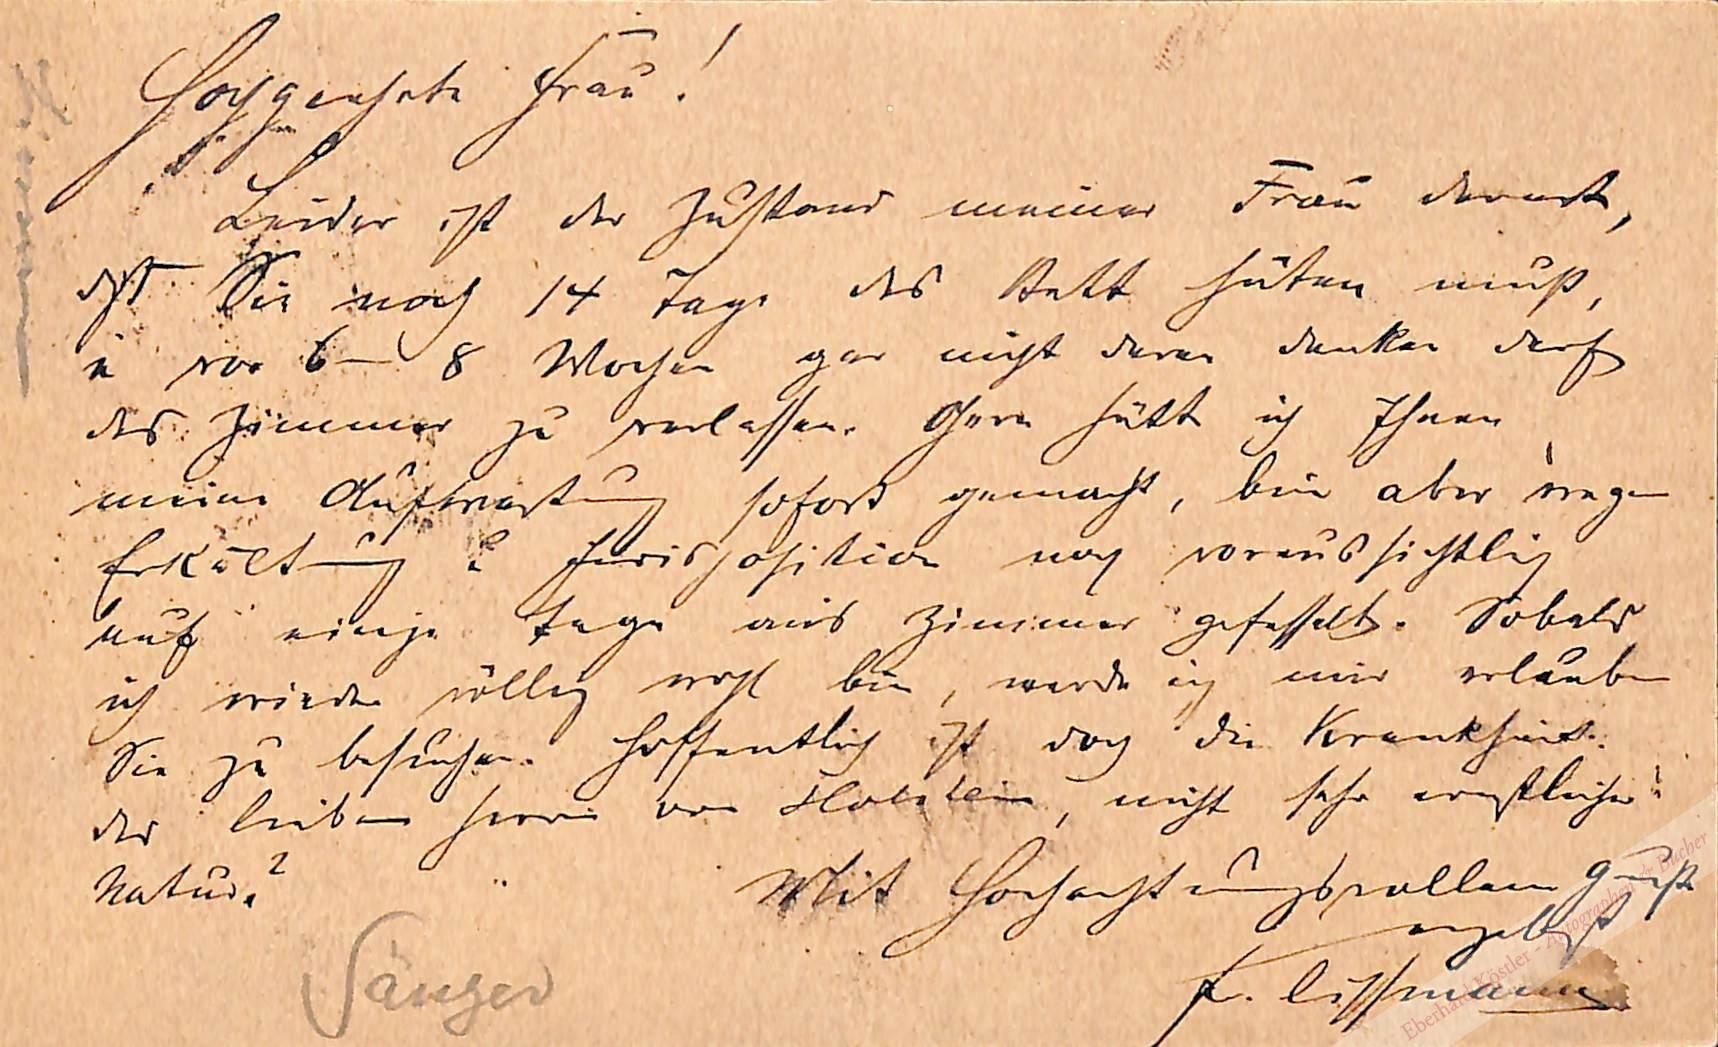 Hochgeehrte Frau!
Leider ist der Zustand meiner Frau derart,
daß Sie noch 14 Tage das Bett hüten muß,
u vor 6 – 8 Wochen gar nicht daran denken darf
das Zimmer zu verlassen. Gern hätt ich Ihnen
meine Aufwartung sofort gemacht, bin aber wegen
Erkältung u noch voraussichtlich
auf einige Tage ans Zimmer gefesselt. Sobald
ich wieder völlig wohl bin, werde ich mir erlauben
Sie zu besuchen. Hoffentlich ist doch die Krankheit
des lieben Herrn von Holstein, nicht sehr ernstlicher
Natur?
Mit Hochachtungsvollem Gruß
ergebenst
F. Lissmann
Sänger
Eberhard Köstler - Autographen & Bücher